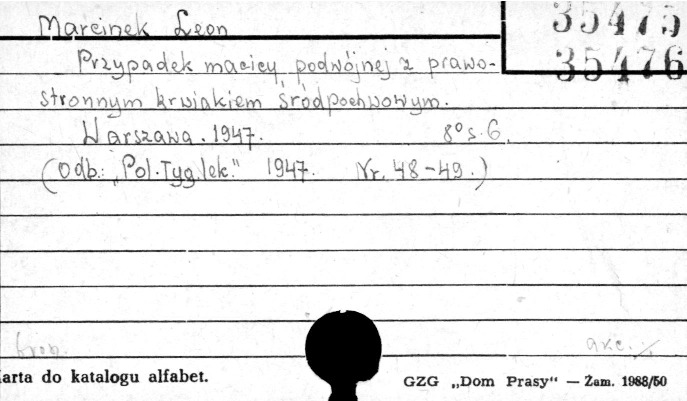 Marcinek Leon
35475
35476
Przypadek macicy podwójnej z prawo-
stronnym krwiakiem śródpochwowym.
Warszawa. 1947. 8° s. 6.
(Odb.: „Pol. Tyg. lek." 1947. Nr. 48-49.)
brosz.
akc.
arta do katalogu alfabet.
GZG „Dom Prasy" — Żam. 1988/50